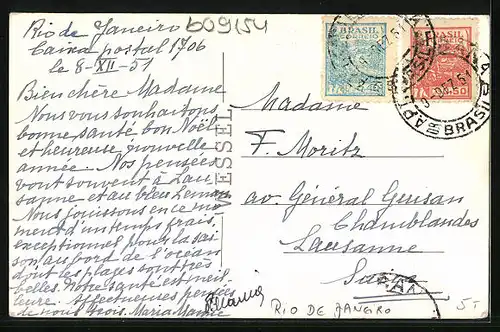 Rio de Janeiro
Caixa postal 1706
le 8-XII-51
Bien chère Madame
Nous vous souhaitons
bonne santé bon Noël
et heureuse nouvelle
année. Nos pensées
vont souvent à Lau-
sanne et au bleu Leman
Nous jouissons en ce mo-
ment d'un temps frais,
exceptionnel pour la sai-
son, au bord de l'océan
dont les plages sont très
belles. Notre santé est meil-
leure. Affectueuses pensées
de nous trois. Maria
609154
WESSEL
BRASIL
CORREIO
BRASIL
CORREIO
BRASIL
Madame
F. Moritz
av. Général Guisan
Chamblandes
Lausanne
RIO DE JANEIRO
5-